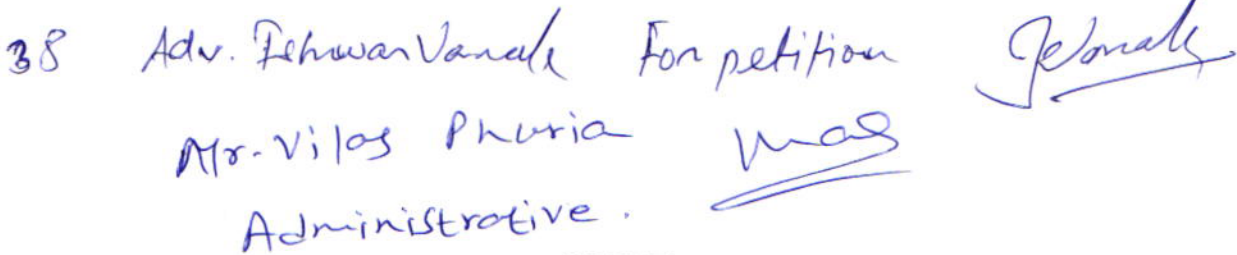 38 Adv. Ishwar Vanale For petition
Mr. Vilas Phuria
Administrative.